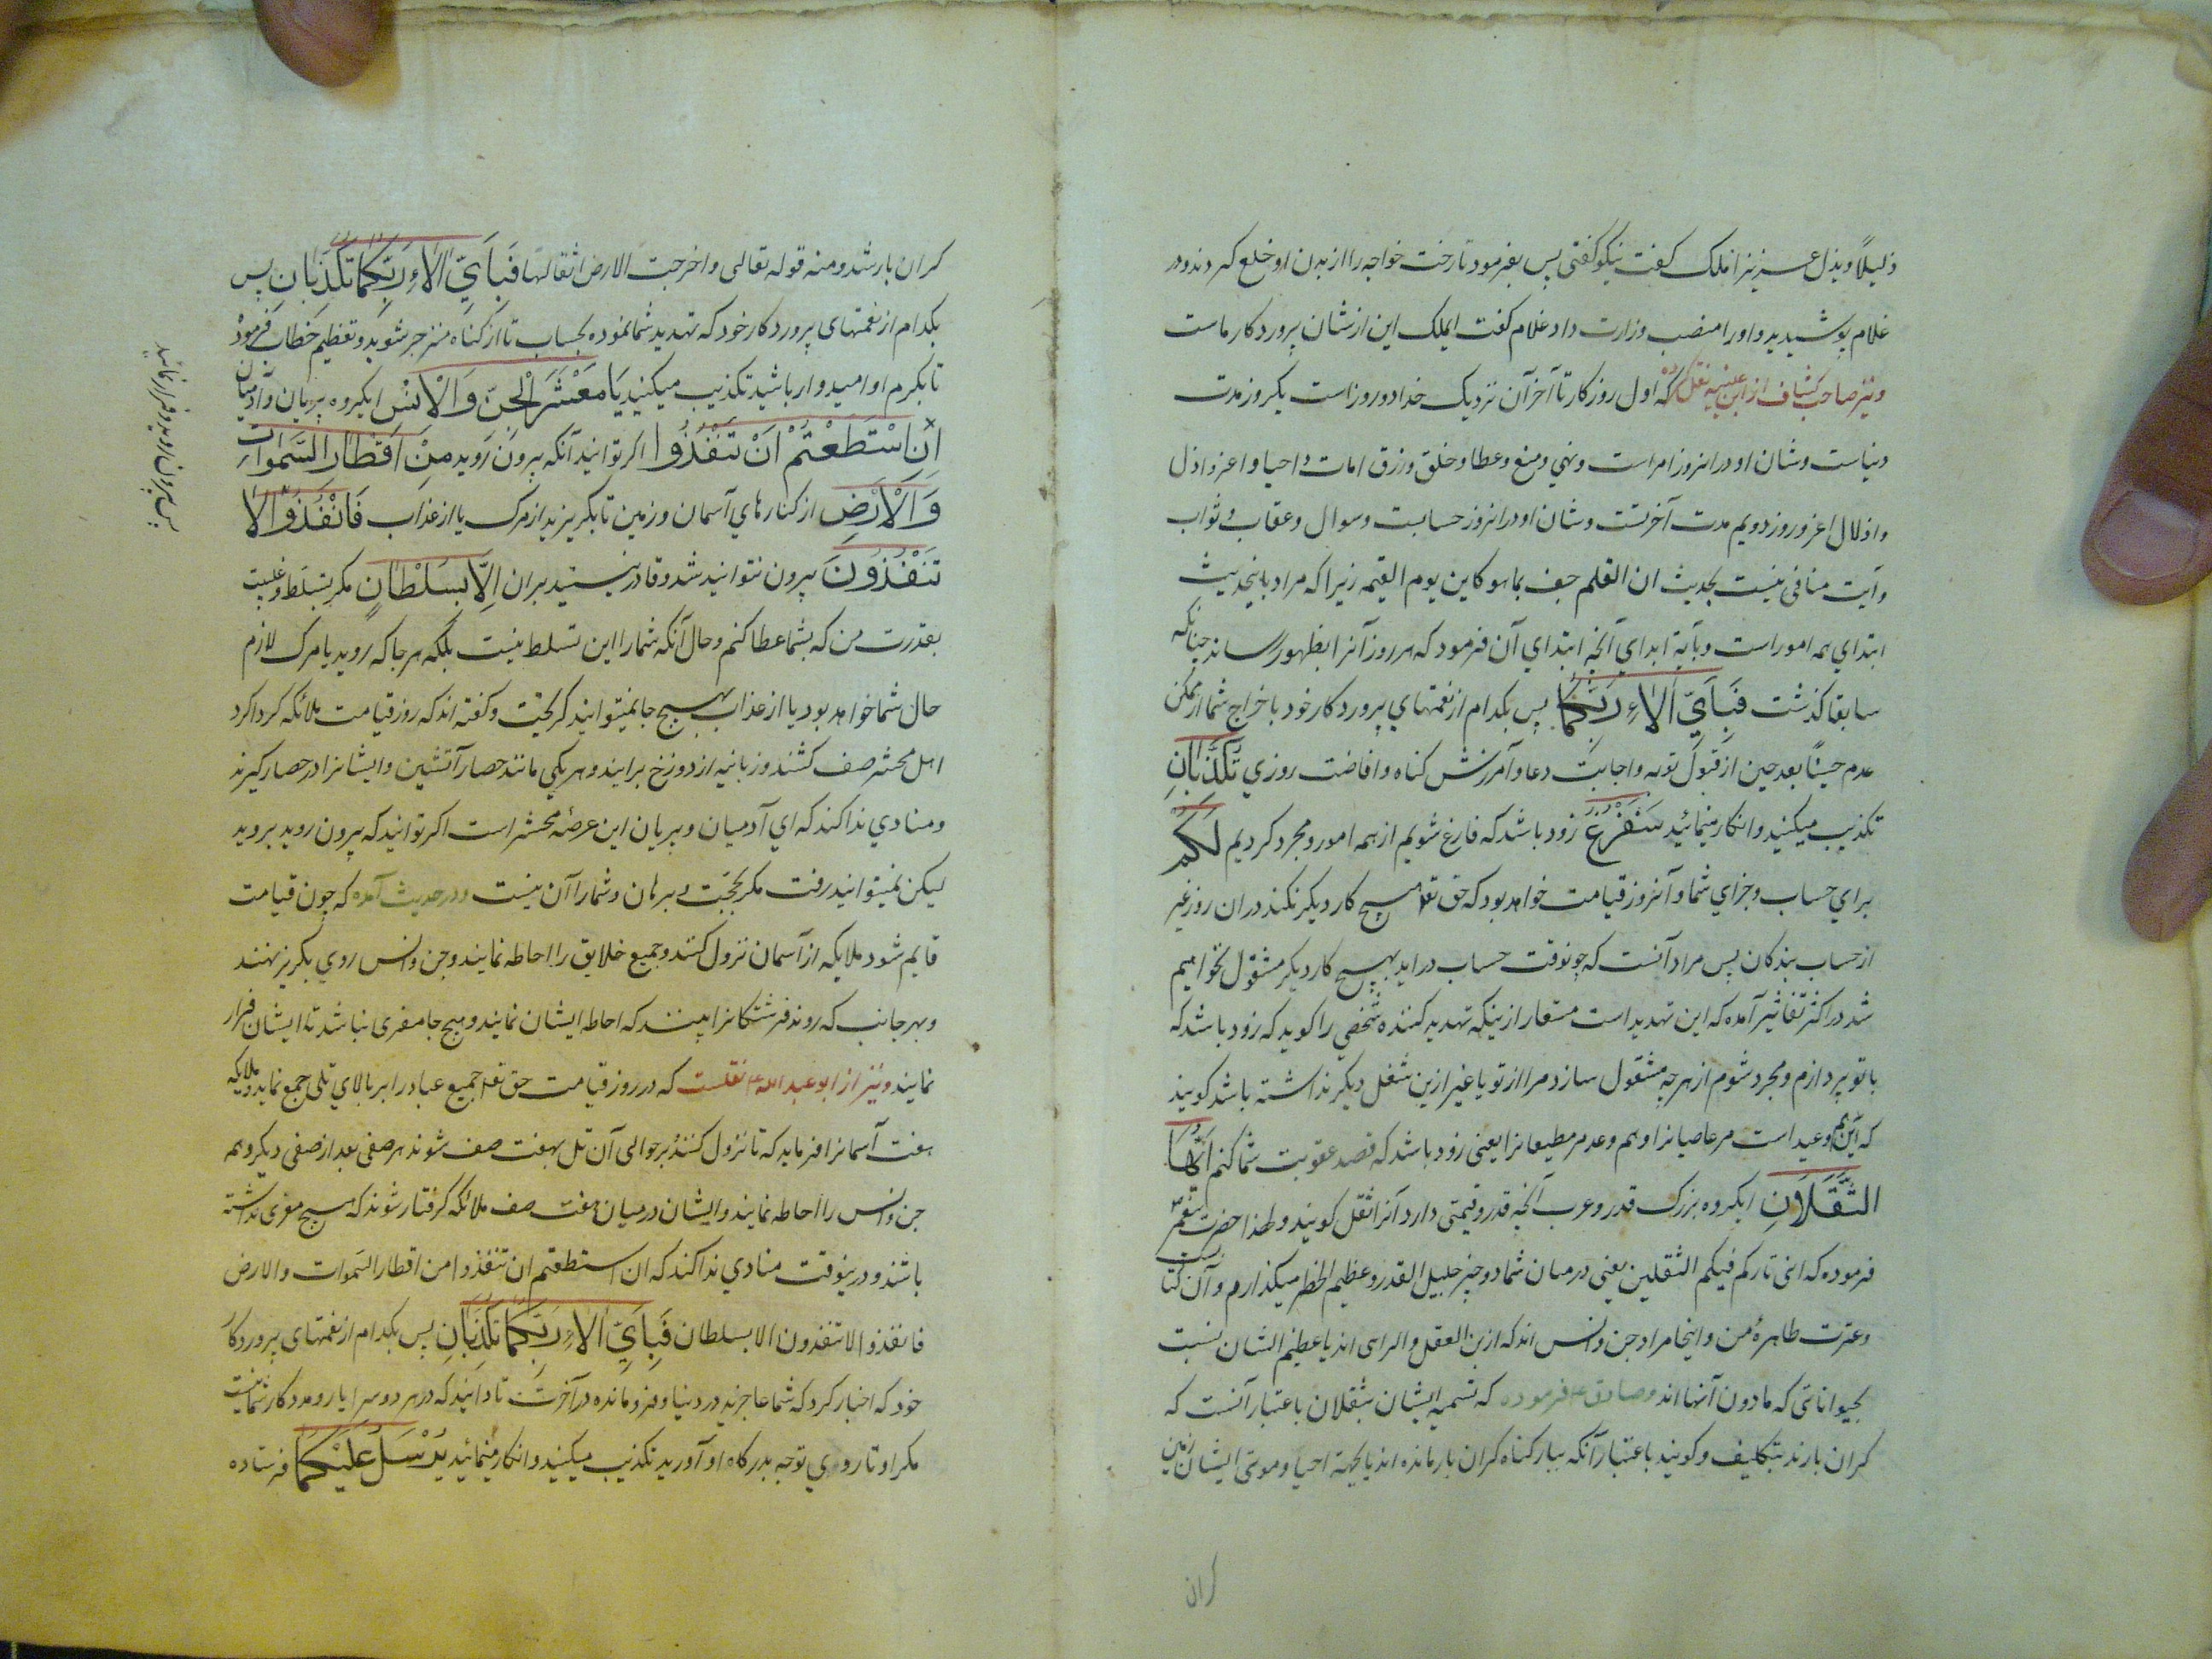 ذلیلاً ویذل عزیزا ملک کفت نیکو کفتی پس بفرمود تا رخت خواجه را از بدن او خلع کردند و در
غلام پوشیدید و او را منصب وزارت داد غلام کفت ایملک این از شان پروردکار ماست
ونیز صاحب کشاف از ابن عینیه نقل کرده که اول روزکار تا آخر آن نزدیک خدا دو روز است یکروز مدت
دنیاست و شان او در انروز امر است و نهی و منع و عطا و خلق و رزق امات و احیا و اعز و اذل
و اذلال اعز و روز دویم مدت آخرتست و شان او در انروز حسابست و سوال و عقاب و ثواب
و آیت منافی نیست بحدیث ان القلم جف بما هو کاین یوم القیمه زیرا که مراد باینحدیث
ابتدای همه امور است و بآیة ابدای آنچه ابتدای آن فرمود که هر روز آنرا بظهور رساند چنانکه
سابقا کذشت فَبِاَيِّ اٰلاءِ رَبِّكُمَا پس بکدام از نعمتهای پروردکار خود باخراج شما از ممکن
عدم حینًا بعد حین از قبول توبه و اجابت دعا و آمرزش کناه و افاضت روزی تُكَذِّبَانِ
تکذیب میکنید و انکار مینمائید سَنَفْرُغُ زود باشد که فارغ شویم از همه امور و مجرد کردیم لَكُمْ
برای حساب و جزای شما و آنروز قیامت خواهد بود که حق تعا هیچ کار دیکر نکند در ان روز غیر
از حساب بندکان پس مراد آنست که چونوقت حساب در اید بهیچ کار دیکر مشغول نخواهیم
شد در اکثر تفاسیر آمده که این تهدید است مستعار از اینکه تهدید کننده شخصی را کوید که زود باشد که
با تو پردازم و مجرد شوم از هر چه مشغول سازد مرا از تو یا غیر ازین شغل دیکر نداشته باشد کویند
که این هم وعید است مر عاصیانرا و هم وعد مر مطیعانرا یعنی زود باشد که قصد عقوبت شما کنم اَيُّهَا
الثَّقَلَانِ ایکروه بزرک قدر و عرب آنچه قدر و قیمتی دارد آنرا ثقل کویند و لهذا حضرت پیغمبر
فرموده که انی تارکم فیکم الثقلین یعنی در میان شما دو چیز جلیل القدر و عظیم الخطر میکذارم و آن کتا
و عترت طاهرهٔ من و اینجا مراد جن و انس اند که ازین العقل و الرای اند یا عظیم الشان نسبت
بحیواناتی که ما دون آنها اند و صادق ع فرموده که تسمیه ایشان بثقلان باعتبار آنست که
کران بارند بتکالیف و کویند باعتبار آنکه ببار کناه کران بار مانده اند یا بجهة احیا و موتی ایشان زمین
کران
کران بار شد و منه قوله تعالی و اخرجت الارض اثقالها فَبِاَيِّ اٰلاءِ رَبِّكُمَا تُكَذِّبَانِ پس
بکدام از نعمتهای پروردکار خود که تهدید شما نموده بحساب تا از کناه منزجر شوید و تعظیم خطاب فرمود
تا بکرم او امیدوار باشید تکذیب میکنید يَا مَعْشَرَ الْجِنِّ وَالْاِنْسِ ایکروه پریان و آدمیان
اِنِ اسْتَطَعْتُمْ اَنْ تَنْفُذُوا اکر توانید آنکه بیرون روید مِنْ اَقْطَارِ السَّمٰوَاتِ
وَالْاَرْضِ از کنارهای آسمان و زمین تا بکریزید از مرک یا از عذاب فَانْفُذُوا لَا
تَنْفُذُونَ بیرون نتوانید شد و قادر نیستید بران اِلَّا بِسُلْطَانٍ مکر بتسلط و غلبت
بقدرت من که بشما عطا کنم و حال آنکه شما را این تسلط نیست بلکه هر جا که روید یا مرک لازم
حال شما خواهد بود یا از عذاب بهیچ جا نمیتوانید کریخت و کفته اند که روز قیامت ملائکه کرداکرد
اهل محشر صف کشند و زبانیه از دوزخ برایند و هر یکی مانند حصار آتشین و ایشانرا در حصار کیرند
و منادی ندا کند که ای آدمیان و پریان این عرصهٔ محشر است اکر توانید که بیرون روید بروید
لیکن نمیتوانید رفت مکر بحجت و برهان و شما را آن نیست و در حدیث آمده که چون قیامت
قایم شود ملایکه از آسمان نزول کنند و جمیع خلایق را احاطه نمایند و جن و انس روی بکریز نهند
و بهر جانب که روند فرشتکانرا بینند که احاطه ایشان نمایند و هیچ جا مفری نباشد تا ایشان فرار
نمایند و نیز از ابو عبد الله ع نقلست که در روز قیامت حق تعا جمیع عباد را بر بالای تلی جمع نماید و ملایکه
هفت آسمانرا فرماید که تا نزول کنند بر حوالی آن تل بهفت صف شوند هر صفی بعد از صفی دیکر و همه
جن و انس را احاطه نمایند و ایشان در میان هفت صف ملائکه کرفتار شوند که هیچ مفری نداشته
باشند و درینوقت منادی ندا کند که ان استطعتم ان تنفذوا من اقطار السموات والارض
فانفذوا لا تنفذون الا بسلطان فَبِاَيِّ اٰلاءِ رَبِّكُمَا تُكَذِّبَانِ پس بکدام از نعمتهای پروردکا
خود که اخبار کرد که شما عاجزید در دنیا و فرومانده در آخرت تا دانید که در هر دو سرا یار و مددکار شما نیست
مکر او تا روی توجه بدرکاه او آورید تکذیب میکنید و انکار مینمائید يُرْسَلُ عَلَيْكُمَا فرستاده
پس بیرون روید و فرار نمائید